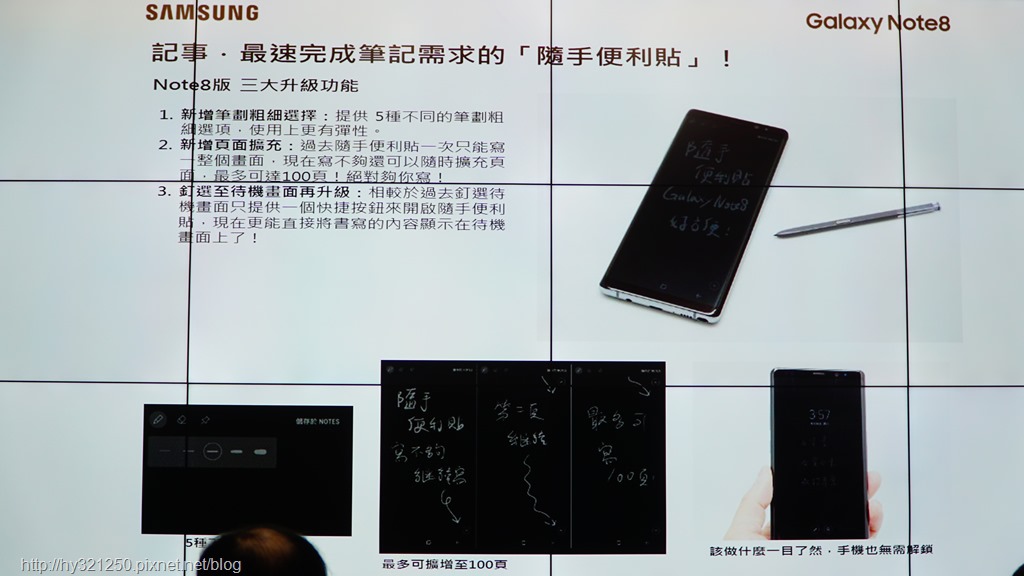 SAMSUNG
Galaxy Note8
記事．最速完成筆記需求的「隨手便利貼」！
Note8版 三大升級功能
1. 新增筆劃粗細選擇：提供 5種不同的筆劃粗
細選項，使用上更有彈性。
2. 新增頁面擴充：過去隨手便利貼一次只能寫
一整個畫面，現在寫不夠還可以隨時擴充頁
面，最多可達100頁！絕對夠你寫！
3. 釘選至待機畫面再升級：相較於過去釘選待
機畫面只提供一個快捷按鈕來開啟隨手便利
貼，現在更能直接將書寫的內容顯示在待機
畫面上了！
隨手
便利貼
Galaxy Note8
好方便！
儲存於 NOTES
隨手
便利貼
寫不夠
繼續寫
第二頁
繼續
最多可
寫
100頁
3:57
5種
最多可擴增至100頁
該做什麼一目了然，手機也無需解鎖
http://hy321250.pixnet.net/blog